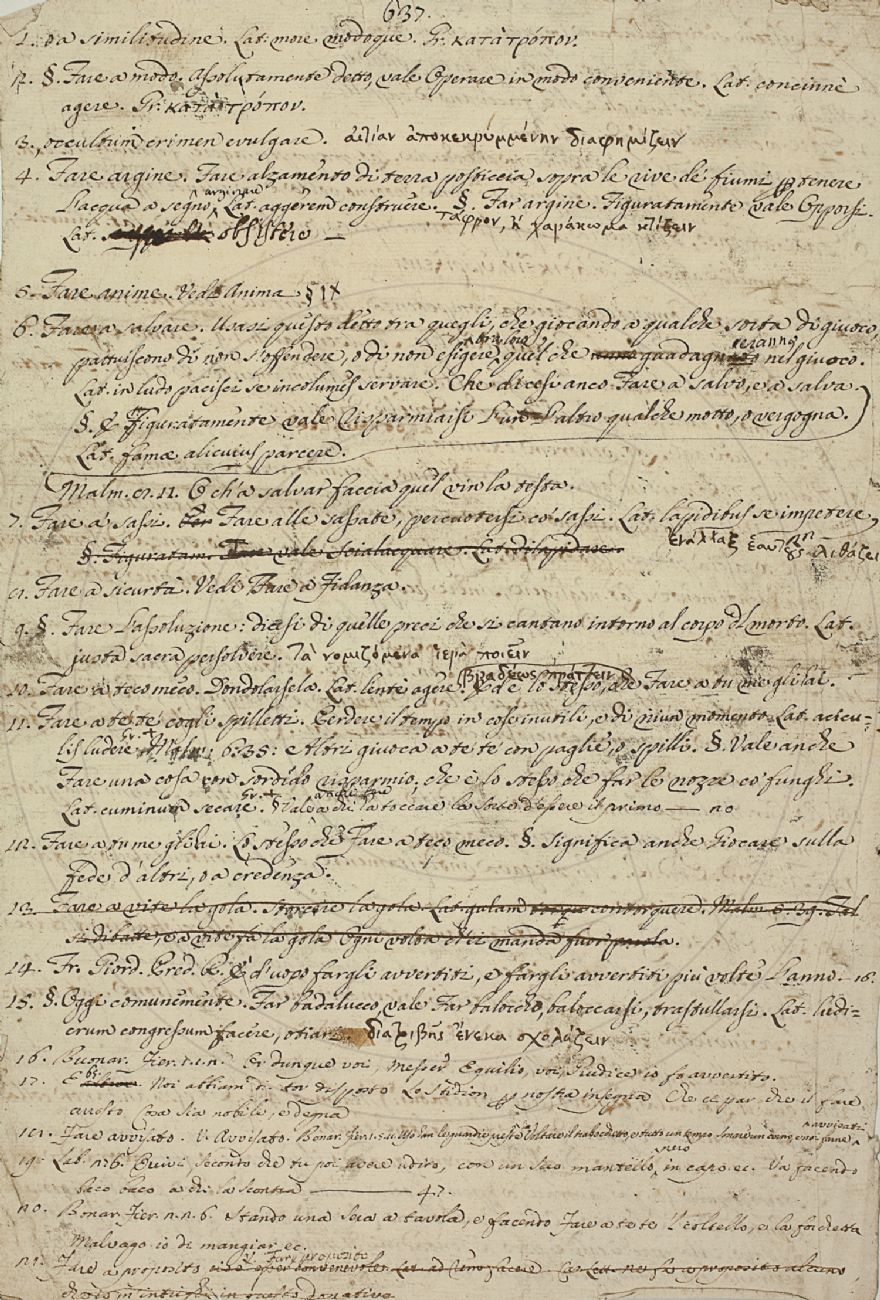 637.
1. o a similitudine. Lat. more modoque. Gr. κατὰ τρόπον.
2. §. Fare a modo. Assolutamente detto, vale Operare in modo conveniente. Lat. concinnè
agere. Gr. κατὰ τρόπον.
3. occultum crimen evulgare. αἰτίαν ἀποκεκρυμμένην διαφημίζειν
4. Fare argine. Fare alzamento di terra posticcia sopra le rive de' fiumi p tenere
arginare
l'acqua a segno, Lat. aggerem construere. §. Far argine. Figuratamente vale Opporsi.
τάφρον, ἢ χαράκωμα κτίζειν
Lat. obsistere —
5. Fare anime. Vedi Anima § IX
6. Fare a salvare. Usasi questo detto tra quegli, che giocando a qualche sorta di giuoco,
pattuiscono di non s'offendere, o di non esigere quel che guadagneranno nel giuoco.
Lat. in ludo pacisci se incolumes servare. Che dicesi anco Fare a salvo, e a salva
§. E Figuratamente vale Risparmiarsi l'un l'altro qualche motto, o vergogna.
Lat. famae alicuius parcere.
Malm. 2. 11. E ch'a salvar faccia quel vin la testa.
7. Fare a' sassi. Fare alle sassate, percuotersi co' sassi. Lat. lapidibus se impetere,
ἐναλλὰξ λιθάζειν
§. Figuratam. vale Scialacquare. Lat. dilapidare.
8. Fare a sicurtà. Vedi Fare a Fidanza.
9. §. Fare l'assoluzione: dicesi di quelle preci che si cantano intorno al corpo del morto. Lat.
justa sacra persolvere. Τὰ νομιζόμενα ἱερὰ ποιεῖν
βραδέως πράττειν
10. Fare a teco meco. Dondolarsela. Lat. lentè agere. Ed è lo stesso, che Fare a tu me gli hai.
11. Fare a te te cogli spilletti. Perdere il tempo in cose inutili, e di niun momento. Lat. acicu-
lis ludere. Malm. 6 35: e Altri giuoca a te te con paglie, o spilli. §. Vale anche
Fare una cosa con sordido risparmio, che è lo stesso che far le nozze co' funghi.
Lat. cuminum secare. § Vale anche a chi la toccare la sorte d'essere il primo — no
12. Fare a tu me gli hai. Lo stesso che Fare a teco meco. §. Significa anche Giocare sulla
fede d'altri, o a credenza.
13. Fare a vite la gola. Storcere la gola. Lat. gulam contorquere. Malm. 8. 39. Tal
si dibatte, e a vite fa la gola Ogni volta ch'ei manda fuor parola.
14. Fr. Giord. Pred. È d'uopo fargli avvertiti, e fargli avvertiti più volte l'anno.
15. §. Oggi comunemente. Far badalucco, vale Far balocco, baloccarsi, trastullarsi. Lat. ludi-
crum congressum facere, otiari. διατριβῆς ἕνεκα σχολάζειν
16. Buonar. Fier. Er dunque voi, Messer Equilio, voi, Giudice io fo avvertito.
17. Noi abbiam disposto Lo Stidion p nostra insegna Che ci par che il fare
arrosto Cosa sia nobile, e degna
18. Fare avvisato. V. Avvisato. Bonar. Fier.
19. Lab. 26. Quivi secondo che tu poi avere udito, con un suo mantello nero in capo ec. Va facendo
baco baco a chi la scontra — 47.
20. Bonar. Fier. 2. 2. 6. Stando una sera a tavola, e facendo Fare a te te l coltello, e la forchetta
Malvagio io di mangiar, ec.
V. Fare proposito
21. Fare a proposito